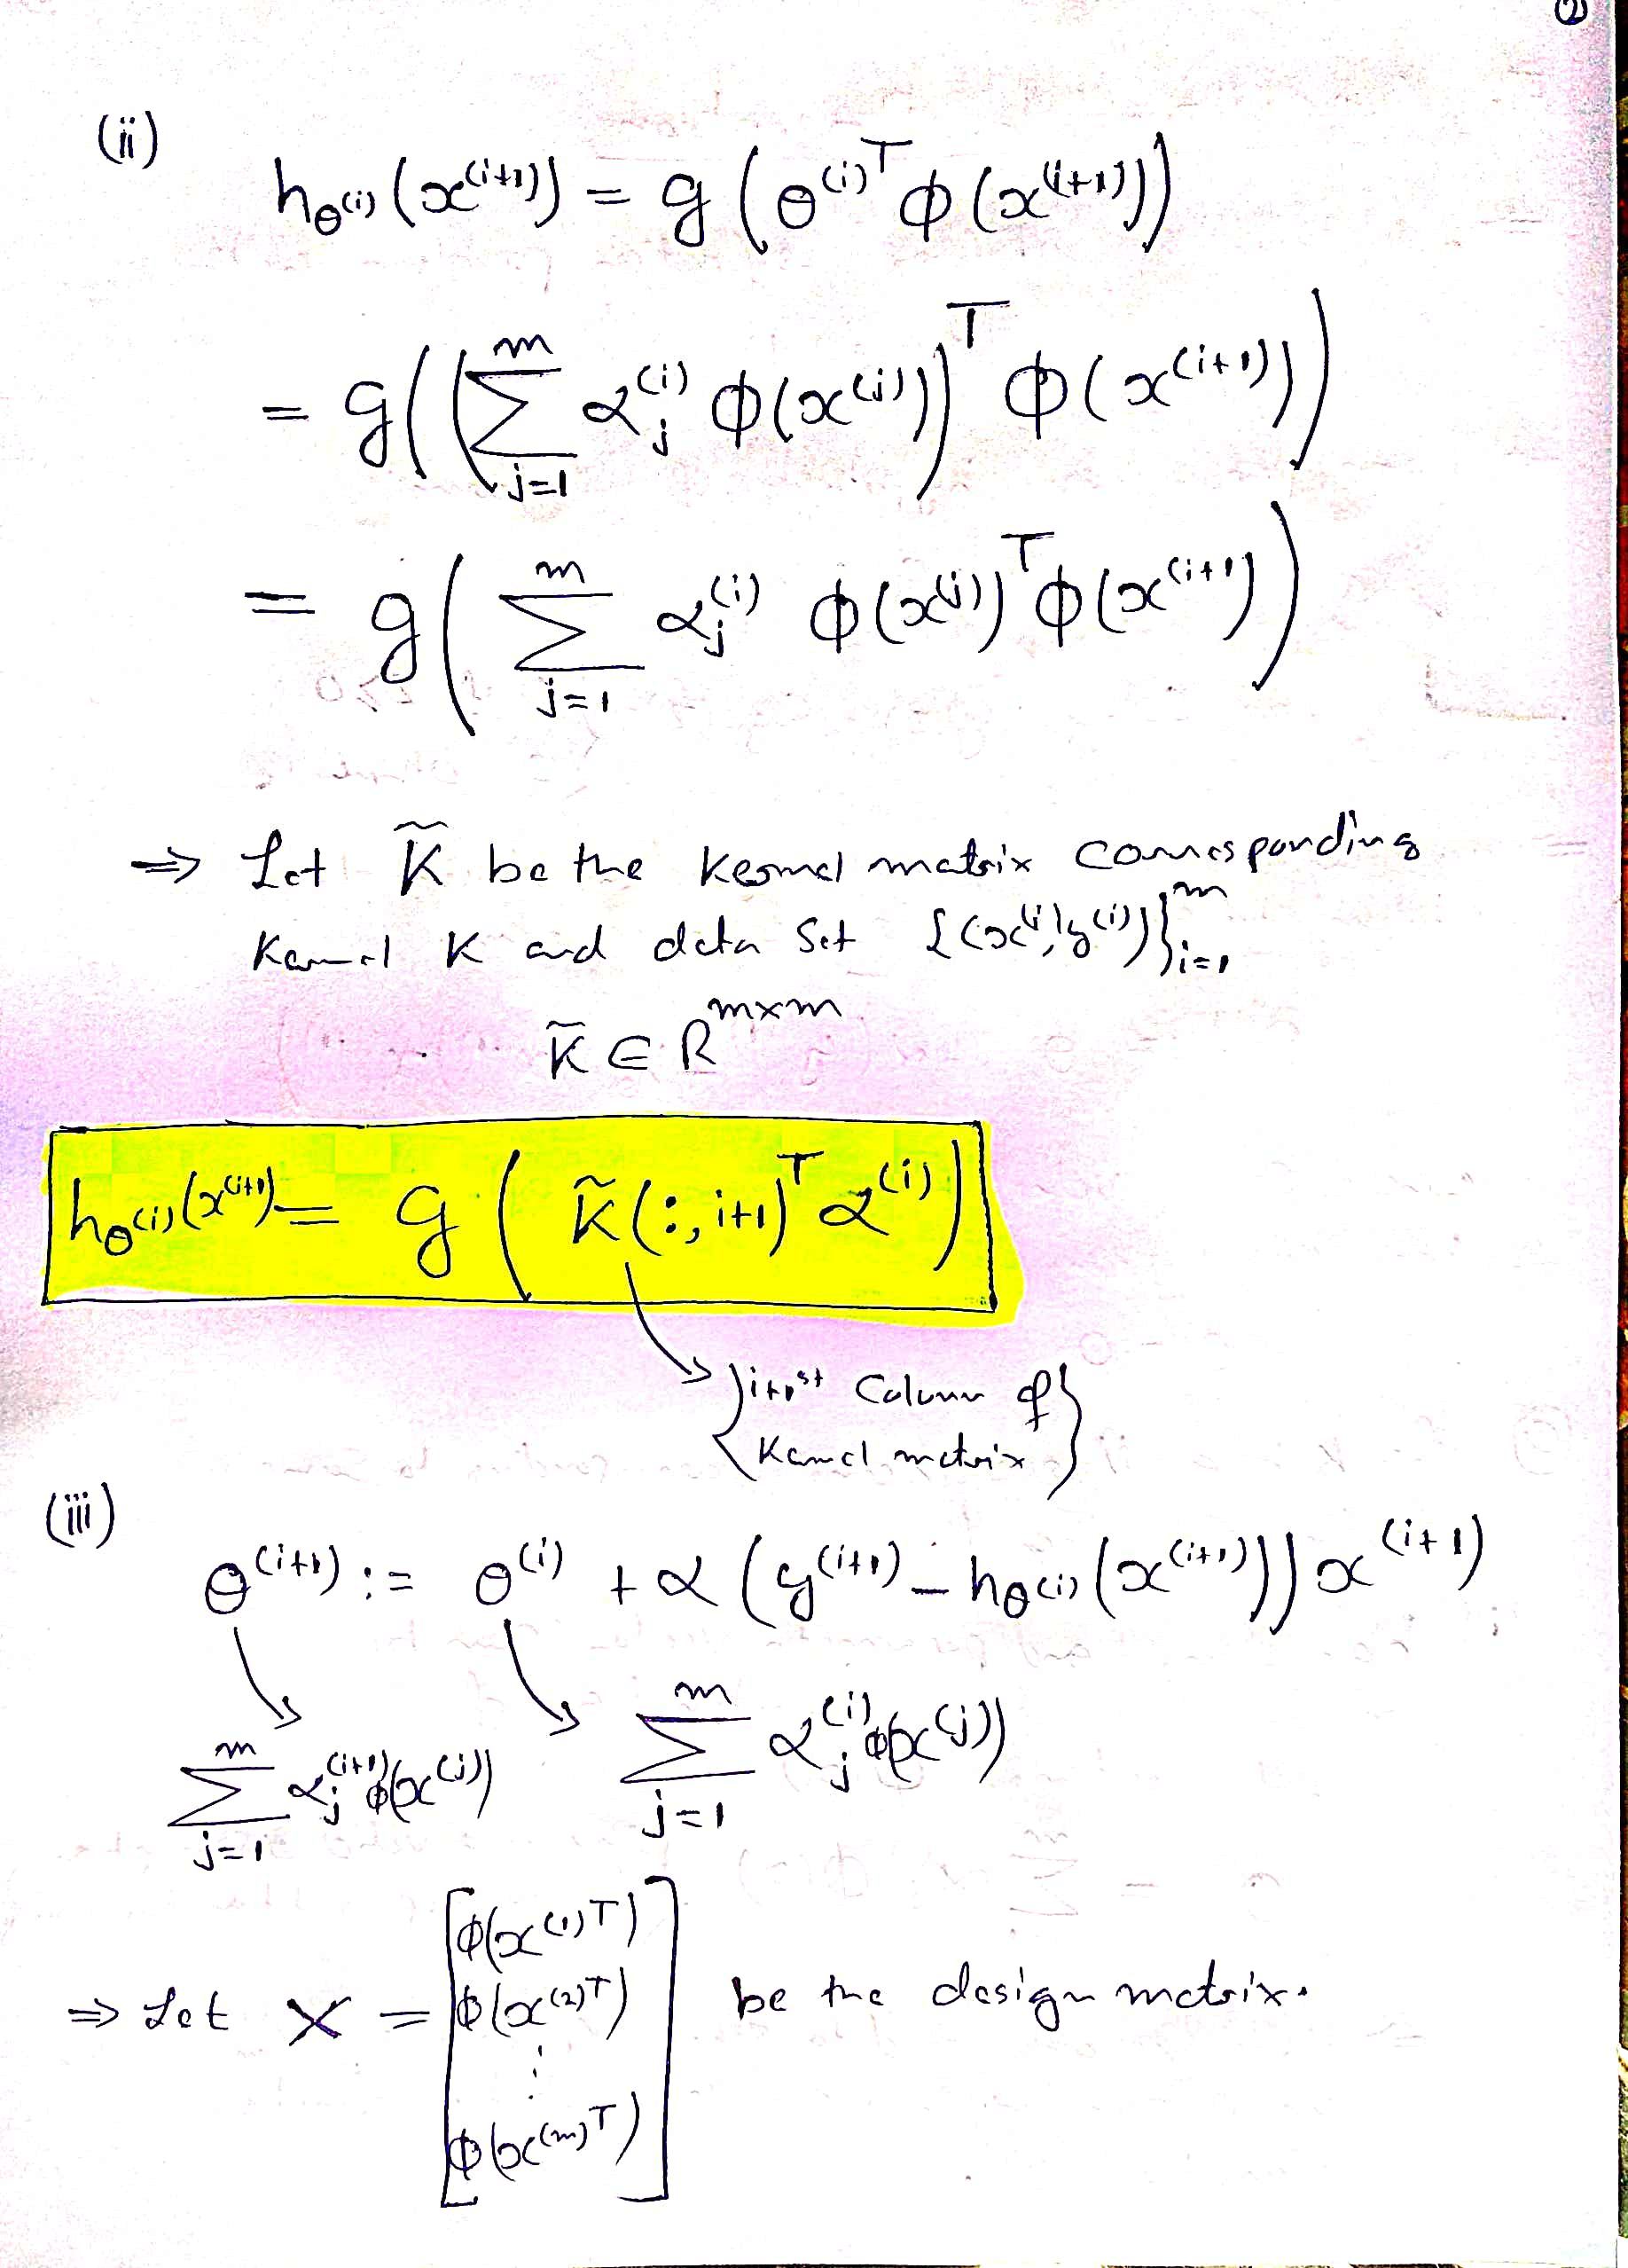 ②
(ii)
h_{θ^{(i)}}(x^{(i+1)}) = g(θ^{(i)T} φ(x^{(i+1)}))
= g((∑_{j=1}^{m} α_j^{(i)} φ(x^{(j)}))^T φ(x^{(i+1)}))
= g(∑_{j=1}^{m} α_j^{(i)} φ(x^{(j)})^T φ(x^{(i+1)}))
⇒ Let K̃ be the Kernel matrix corresponding
Kernel K and data Set {(x^{(i)}, y^{(i)})}_{i=1}^{m}
K̃ ∈ R^{m×m}
h_{θ^{(i)}}(x^{(i+1)}) = g(K̃(:,i+1)^T α^{(i)})
{i+1^{st} Column of
Kernel matrix}
(iii)
θ^{(i+1)} := θ^{(i)} + α(y^{(i+1)} - h_{θ^{(i)}}(x^{(i+1)})) x^{(i+1)}
∑_{j=1}^{m} α_j^{(i+1)} φ(x^{(j)}) ∑_{j=1}^{m} α_j^{(i)} φ(x^{(j)})
⇒ Let X = [φ(x^{(1)T}) φ(x^{(2)T}) ⋮ φ(x^{(m)T})] be the design matrix.